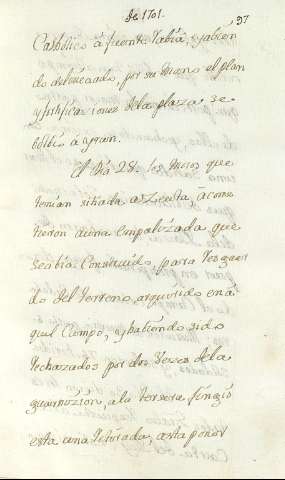 de 1701. 37
Catolico á fuente Rabia, y abien
do delineado, por su mano el plan
y fortifica iones de la plaza se
bolbió á Yran.
El dia 28. los Moros que
tenian sitiada a Zeuta, acome
tieron a una empalizada que
se abia Construido, para resguar
do del terreno, arquirido en a
quel Campo, y habiendo sido
rechazados por dos veses de la
guarnizion, a la tersera fingió
esta una retirada, asta poner